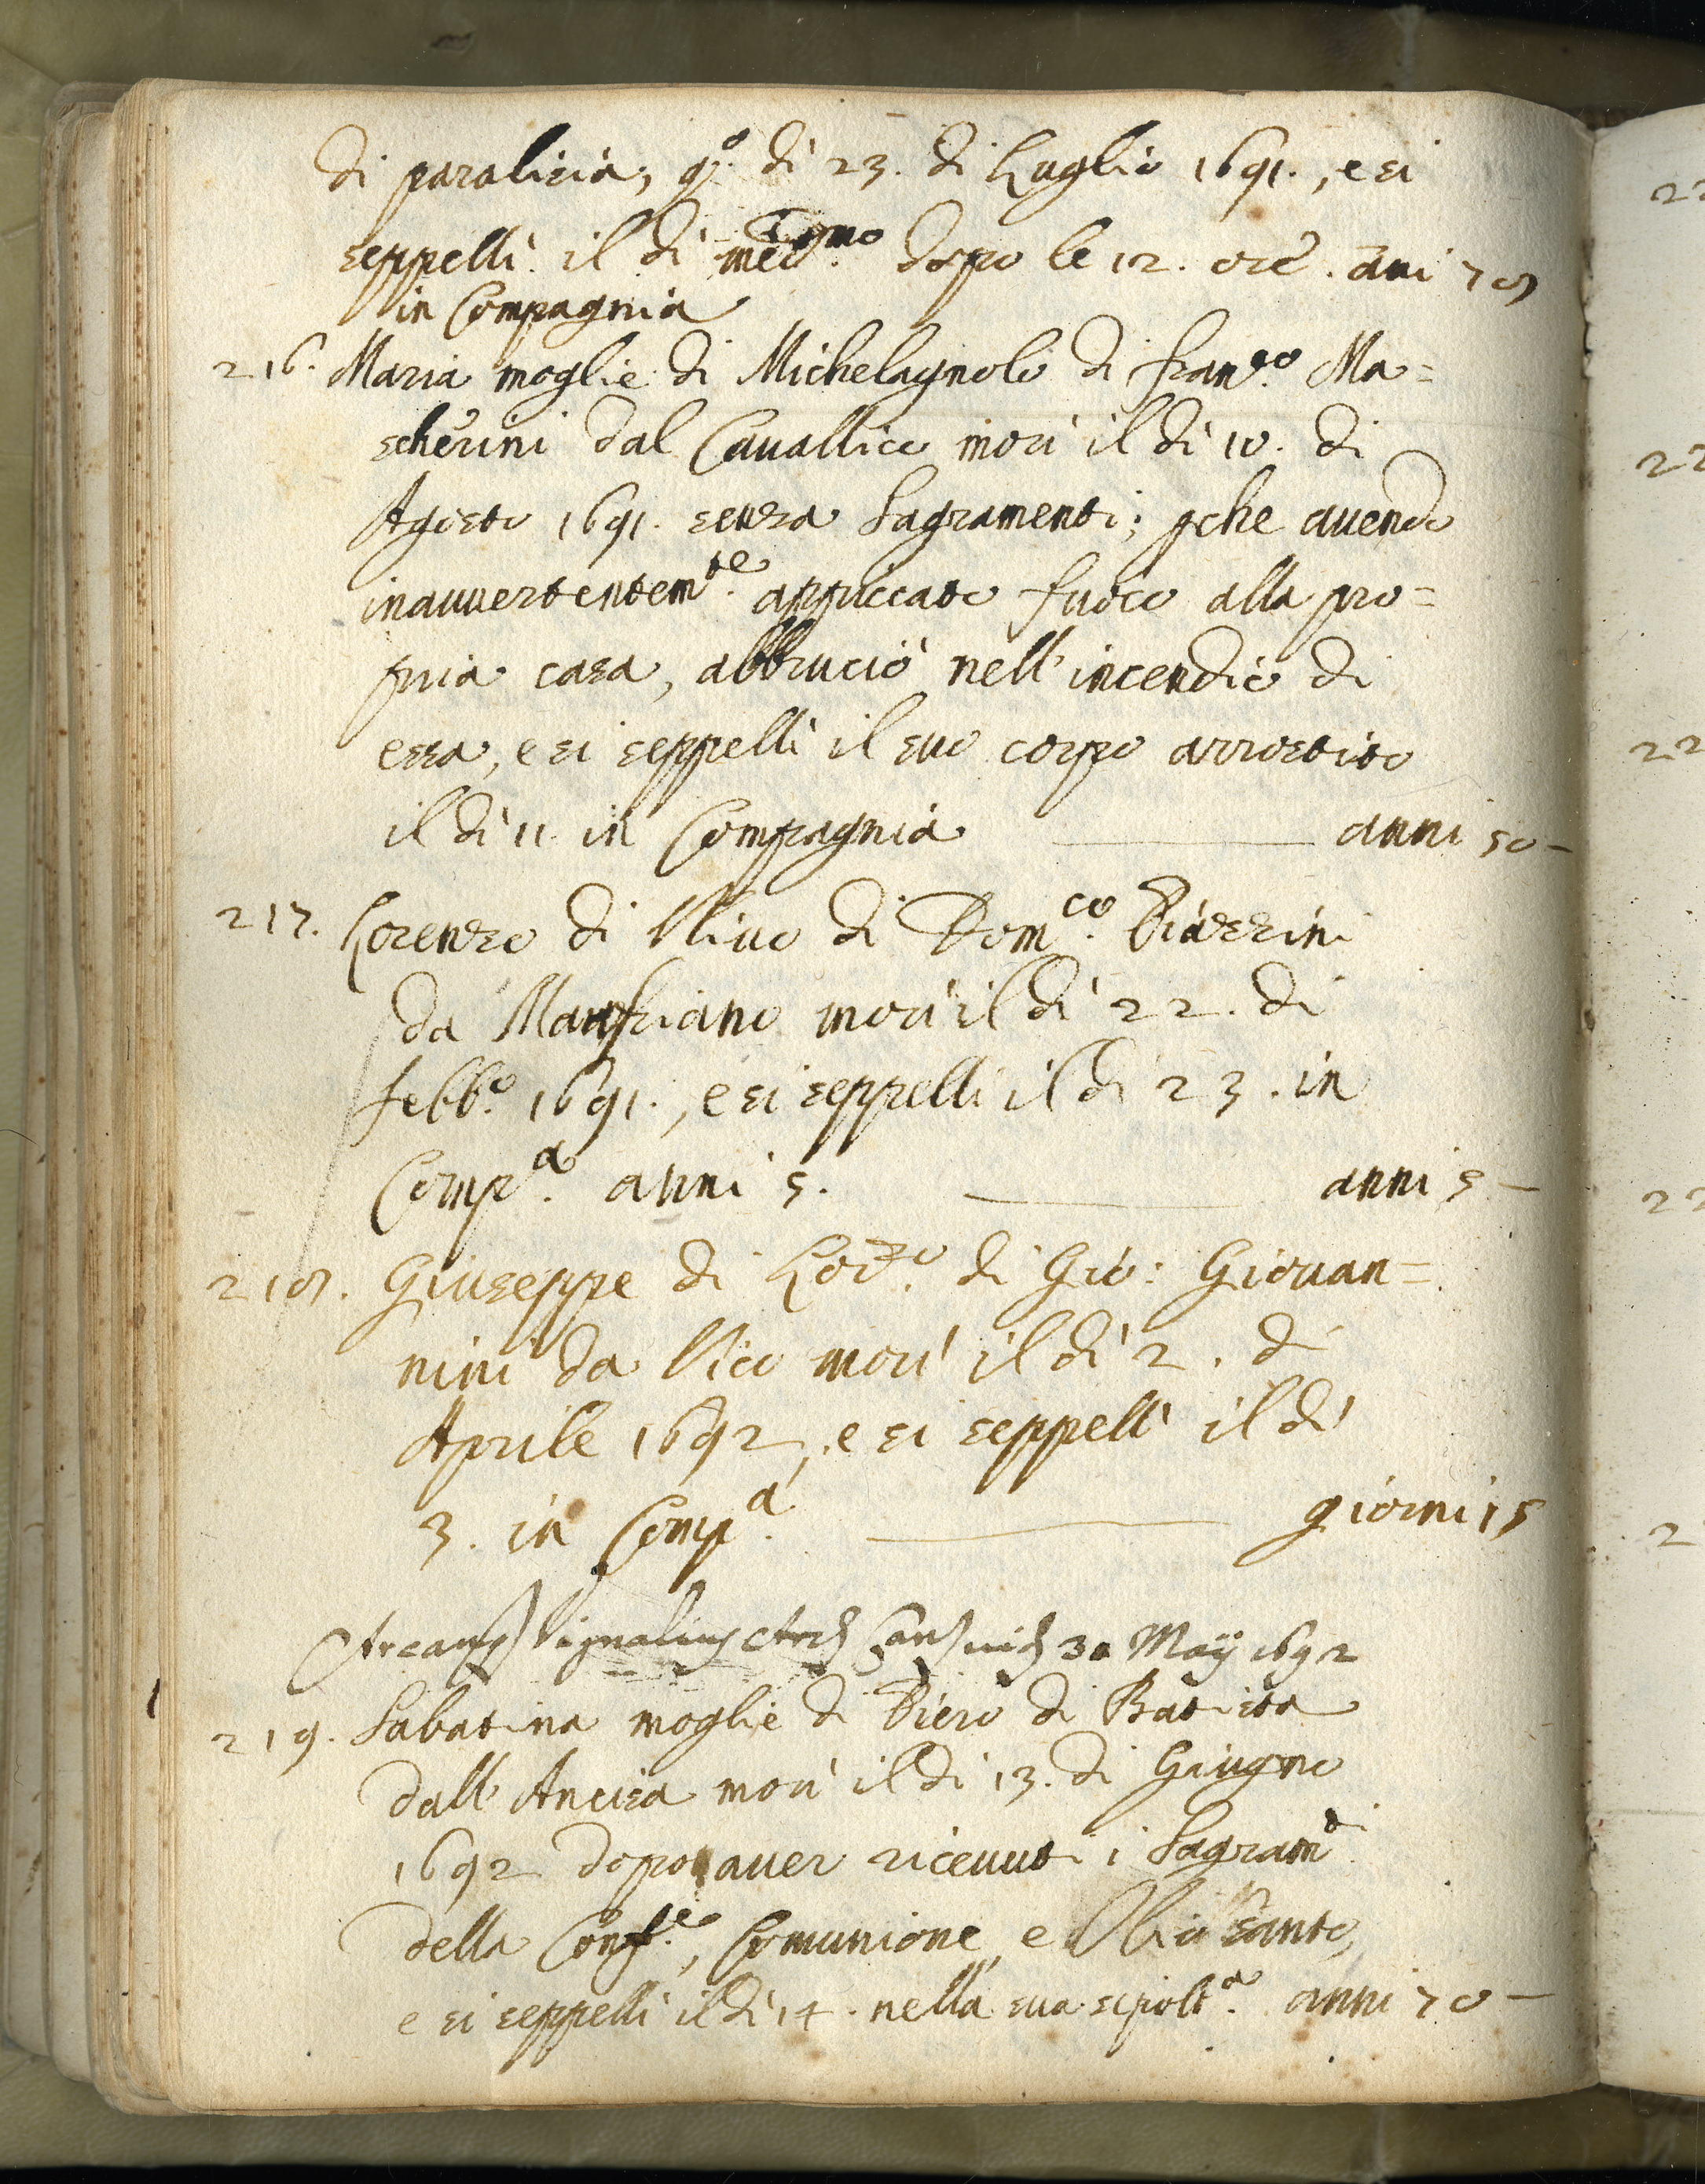 di paralisia, q.º dì 23. di Luglio 1691., e si
seppellì il dì med.mo dopo le 12. ore. ani 78
in Compagnia
216. Maria moglie di Michelagnolo di Fran.co Ma=
scherini dal Cavallico morì il dì 10. di
Agosto 1691. senza Sagramenti; pche avendo
inavvertentem.te appiccato fuoco alla pro=
pria casa, abbruciò nell'incendio di
essa, e si seppellì il suo corpo arrostito
il dì 11. in Compagnia anni 50
217. Lorenzo di Vivo di Dom.co Piazzini
da Manfriano morì il dì 22. di
Febb.º 1691., e si seppellì il dì 23. in
Comp.a anni 5. anni 5
218. Giuseppe di Lor.zo di Gio: Giovan=
nini da Vico morì il dì 2. di
Aprile 1692, e si seppellì il dì
3. in Comp.a giorni 15
30 Maij 1692
219. Sabatina moglie di Piero di Batista
dall'Ancisa morì il dì 13. di Giugno
1692 dopo aver ricevuti i Sagram.ti
della Conf.e, Comunione, e Olio santo,
e si seppellì il dì 14. nella sua sepolt.a anni 70
22
22
22
22
2